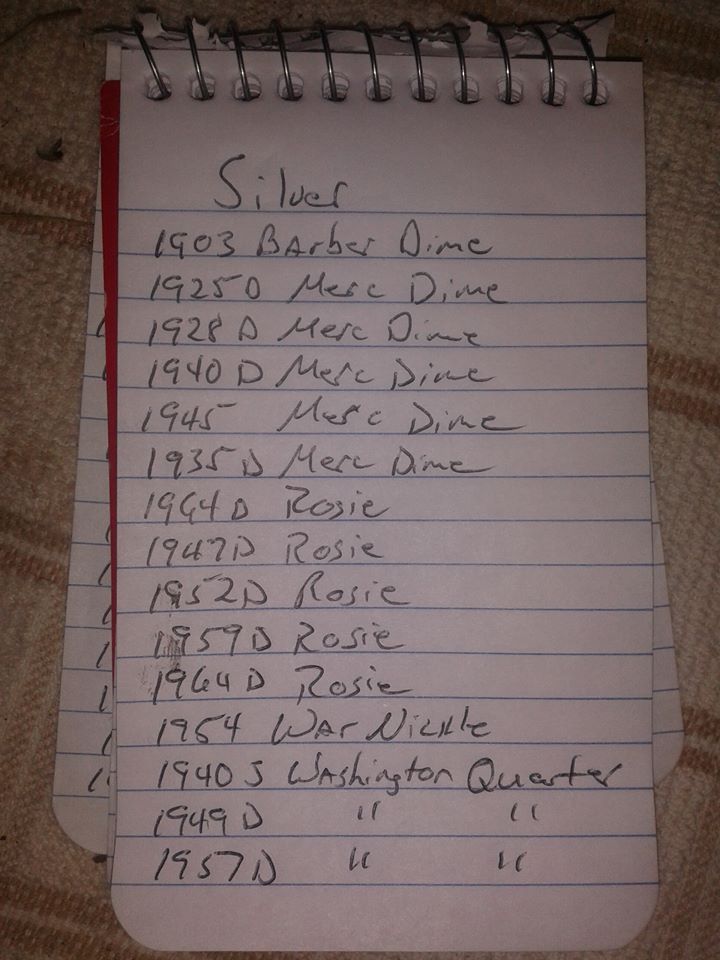 Silver
1903 Barber Dime
1925 D Merc Dime
1928 D Merc Dime
1940 D Merc Dime
1945 Merc Dime
1935 D Merc Dime
1964 D Rosie
1947 D Rosie
1952 D Rosie
1959 D Rosie
1964 D Rosie
1954 War Nickle
1940 S Washington Quarter
1949 D " "
1957 D " "